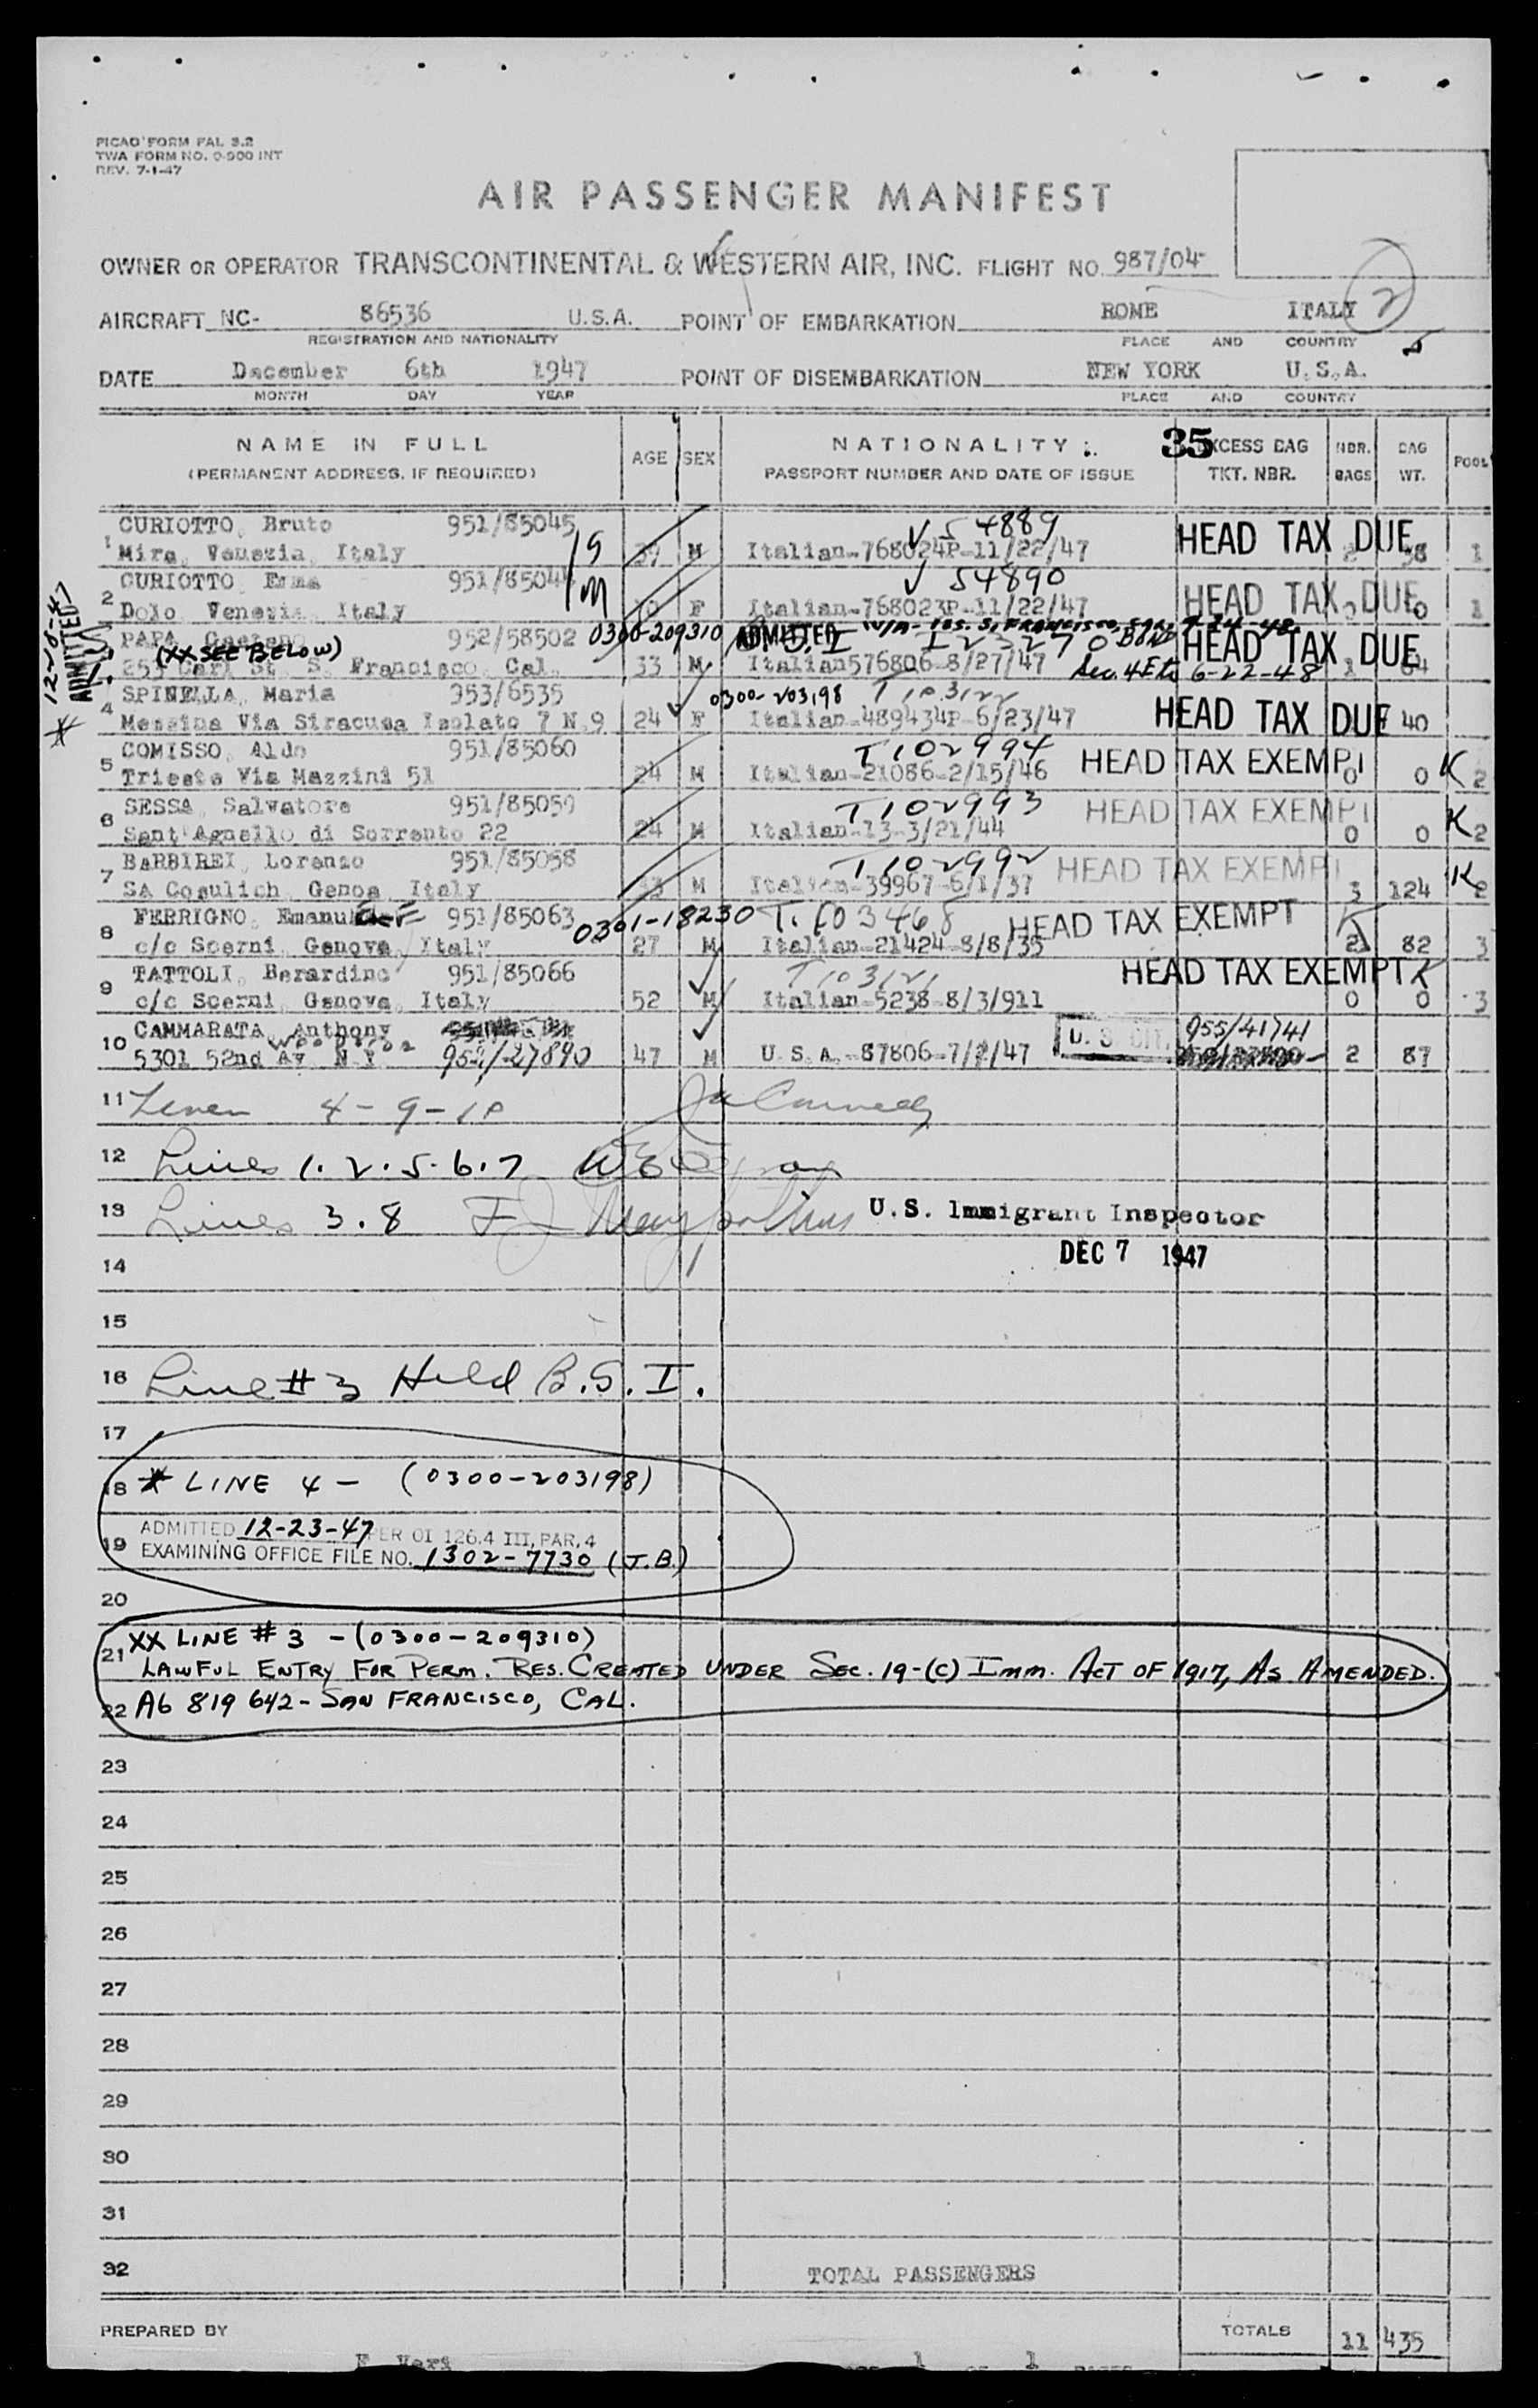 PICAO FORM FAL 3.2
TWA FORM NO. 0-900 INT
REV. 7-1-47
AIR PASSENGER MANIFEST
OWNER OR OPERATOR TRANSCONTINENTAL & WESTERN AIR, INC. FLIGHT NO. 987/04
2
AIRCRAFT NC- 86536 U.S.A. POINT OF EMBARKATION ROME ITALY
REGISTRATION AND NATIONALITY PLACE AND COUNTRY
DATE December 6th 1947 POINT OF DISEMBARKATION NEW YORK U.S.A.
MONTH DAY YEAR PLACE AND COUNTRY
NAME IN FULL AGE SEX NATIONALITY 35 EXCESS BAG NBR. BAG POOL
(PERMANENT ADDRESS, IF REQUIRED) PASSPORT NUMBER AND DATE OF ISSUE TKT. NBR. BAGS WT.
CURIOTTO, Bruto 951/85045 54889 HEAD TAX DUE
1 Mira, Venezia, Italy M Italian-768024P-11/22/47 2 1
CURIOTTO, Erma 54890 HEAD TAX DUE
2 Dolo Venezia Italy F Italian-768023P-11/22/47 0 0 1
PAPA, Gaetano 952/58502 0300-209310 ADMITTED HEAD TAX DUE
(XX SEE BELOW)
253 Carl St S. Francisco Cal. 33 M Italian576806-8/27/47 6-22-48 1
SPINELLA, Maria 953/6535 0300-203198 HEAD TAX DUE
4 Messina Via Siracusa Isolato 7 N.9 24 F Italian-489434P-6/23/47 40
COMISSO, Aldo 951/85060 T102994 HEAD TAX EXEMPT
5 Trieste Via Mazzini 51 24 M Italian-21086-2/15/46 0 0 K 2
SESSA, Salvatore 951/85059 T102993 HEAD TAX EXEMPT
6 Sant'Agnello di Sorrento 22 24 M Italian-13-3/21/44 0 0 K 2
BARBIREI, Lorenzo 951/85058 T102992 HEAD TAX EXEMPT
7 SA Cosulich Genoa, Italy M Italian-39967-6/1/37 3 124 K 2
FERRIGNO, 951/85063 0301-18230 T.103468 HEAD TAX EXEMPT K
8 c/o Scerni, Genova, Italy 27 M Italian-21424-8/8/35 2 82 3
TATTOLI, Berardino 951/85066 T103121 HEAD TAX EXEMPT K
9 c/o Scerni, Genova, Italy 52 M Italian-5238-8/3/911 0 0 3
CAMMARATA, Anthony U.S. CIT. 955/41741
10 5301 52nd Av N.Y. 47 M U.S.A.-87806-7/2/47 2 87
11 4-9-10
12 Lines 1.2.5.6.7
13 Lines 3.8 U.S. Immigrant Inspector
14 DEC 7 1947
15
16 Line #3 Held B.S.I.
17
18 * LINE 4 - (0300-203198)
ADMITTED 12-23-47 PER OI 126.4 III, PAR. 4
19 EXAMINING OFFICE FILE NO. 1302-7730 (J.B.)
20
21 XX LINE #3 - (0300-209310)
LAWFUL ENTRY FOR PERM. RES. CREATED UNDER SEC. 19-(C) IMM. ACT OF 1917, AS AMENDED.
22 A6 819 642 - SAN FRANCISCO, CAL.
23
24
25
26
27
28
29
30
31
32 TOTAL PASSENGERS
PREPARED BY TOTALS 11 435